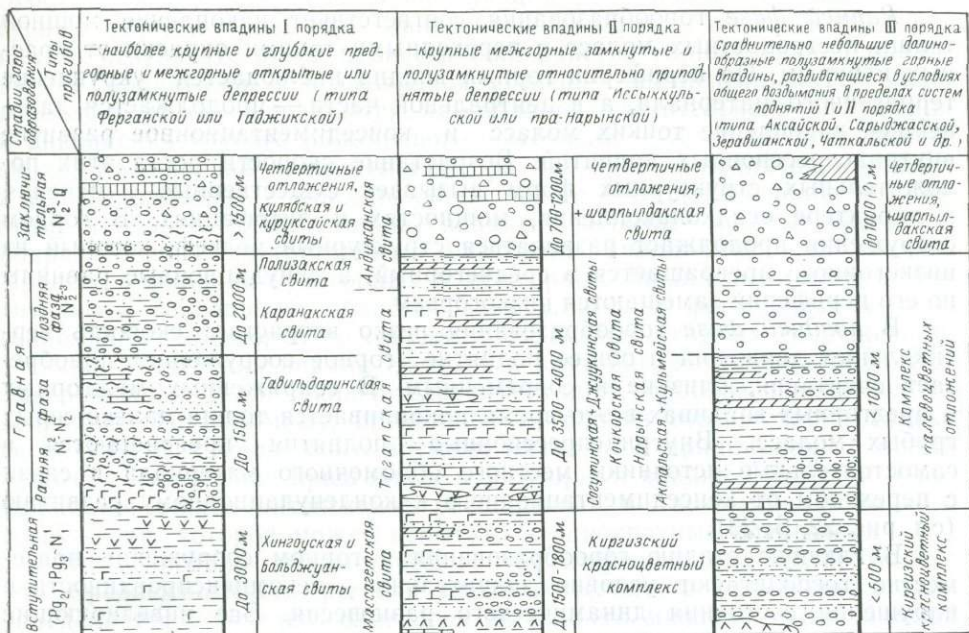 Стадии горо-
образования
Типы
прогибов
Тектонические впадины I порядка
-наиболее крупные и глубокие пред-
горные и межгорные открытые или
полузамкнутые депрессии (типа
Ферганской или Таджикской)
Тектонические впадины II порядка
-крупные межгорные замкнутые
полузамкнутые относительно припод-
нятые депрессии (типа Иссыккуль-
ской или пра-Нарынской)
Тектонические впадины III порядка
сравнительно небольшие долино-
образные полузамкнутые горные
впадины, развивающиеся в условиях
общего воздымания в пределах систем
поднятий I и II порядка
(типа Аксайской, Сарыджасской,
Зеравшанской, Чаткальской и др.)
Заключи-
тельная
N₂³-Q
До 1500 м
Четвертичные
отложения,
кулябская и
куруксайская
свиты
Андижанская
свита
До 700-1200м
Четвертичные
отложения,
+шарпылдакская
свита
До 1000 (?) м
Четвертич-
ные отло-
жения,
+шарпыл-
дакская
свита
Главная
Поздняя
фаза
N₂²⁻³
До 2000м
Полизакская
свита
Каранакская
свита
Ранняя фаза
До 1500 м
Тавильдаринская
свита
Ферганская свита
До 3500-4000 м
Согутинская(Джуукинская)свиты
Иссыккульская свита
Нарынская свита
Актальская(Кульмейская)свиты
< 1000м
Комплекс
палевоцветных
отложений
Вступительная
До 3000м
Хингоуская и
Бальджуан-
ская свиты
Массагетская
свита
До 1500-1800м
Киргизский
красноцветный
комплекс
< 500 м
Киргизский
красноцветный
комплекс